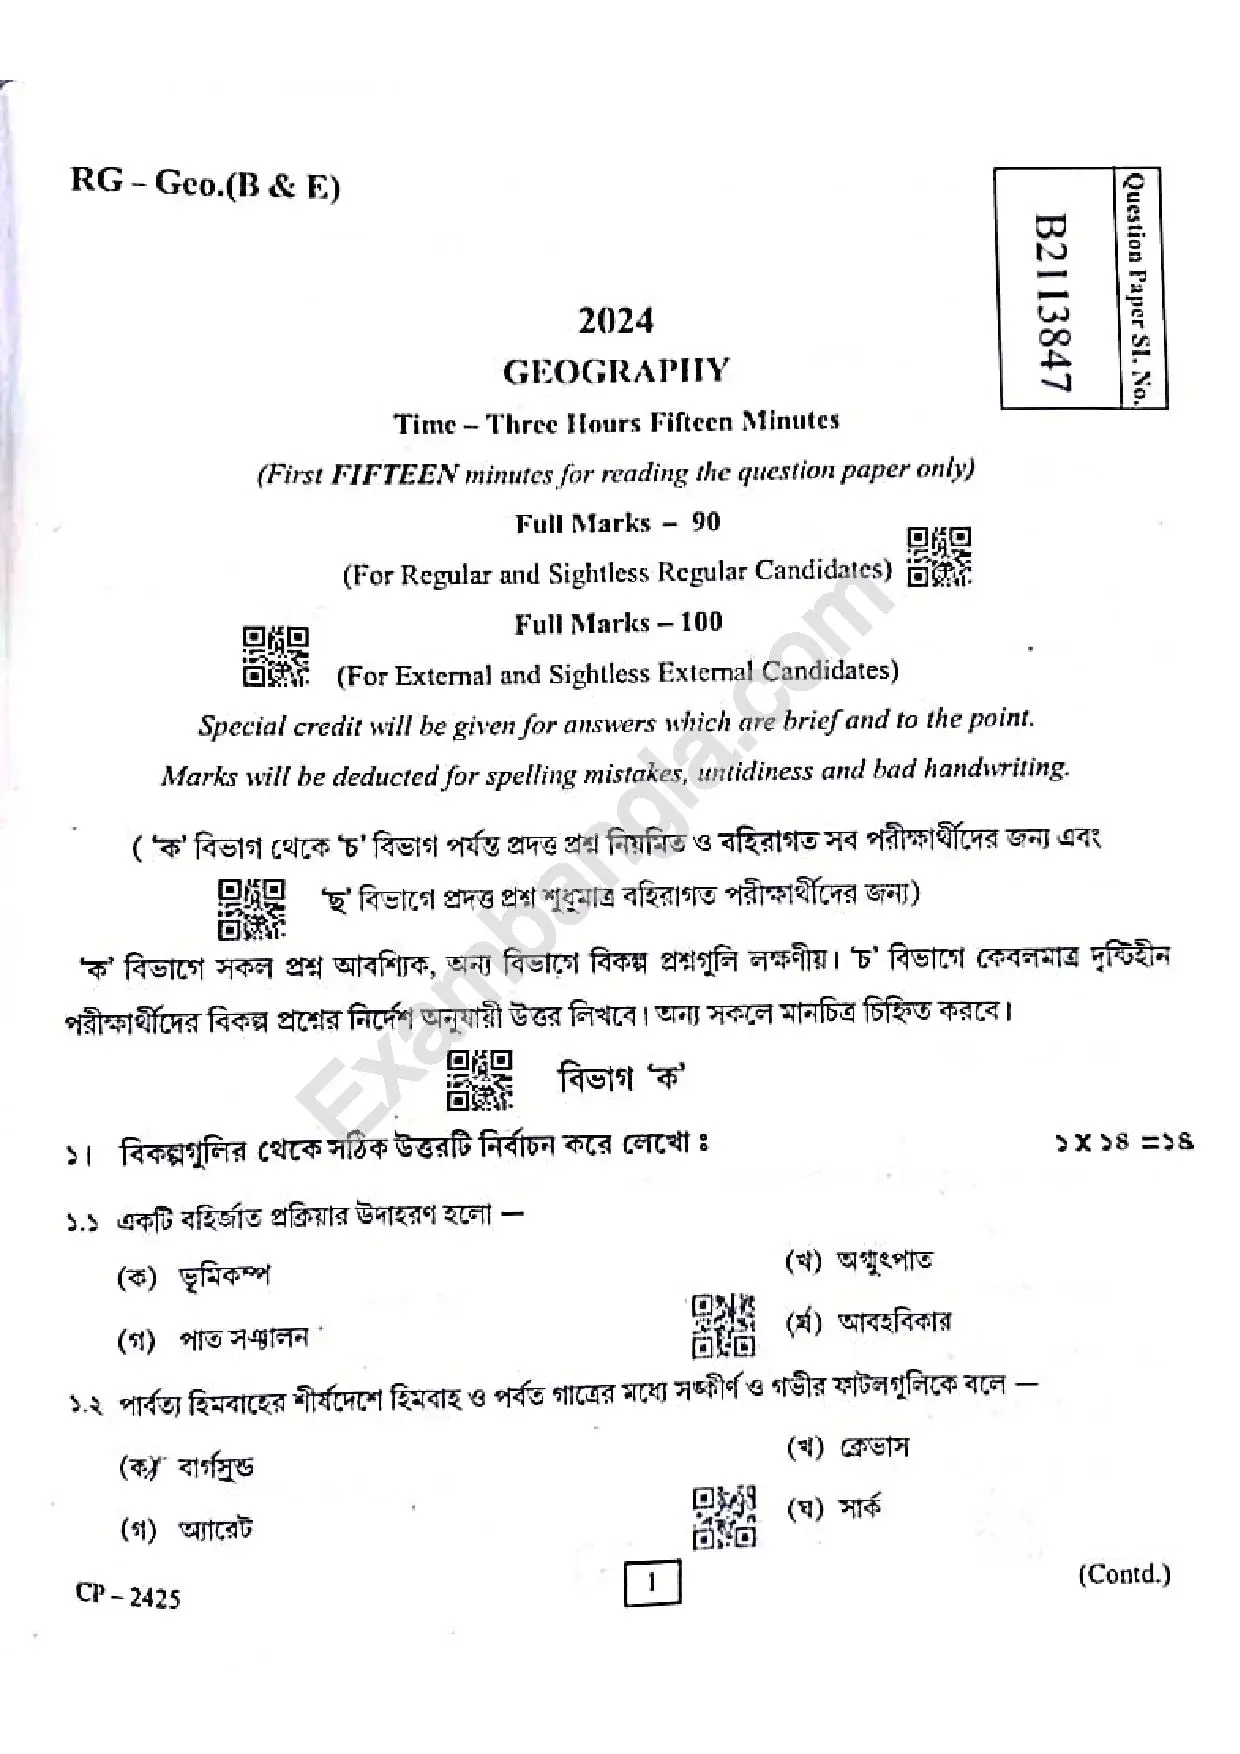 RG – Geo.(B & E)
Question Paper Sl. No.
B2113847
2024
GEOGRAPHY
Time – Three Hours Fifteen Minutes
(First FIFTEEN minutes for reading the question paper only)
Full Marks – 90
(For Regular and Sightless Regular Candidates)
Full Marks – 100
(For External and Sightless External Candidates)
Special credit will be given for answers which are brief and to the point.
Marks will be deducted for spelling mistakes, untidiness and bad handwriting.
( 'ক' বিভাগ থেকে 'চ' বিভাগ পর্যন্ত প্রদত্ত প্রশ্ন নিয়মিত ও বহিরাগত সব পরীক্ষার্থীদের জন্য এবং
'ছ' বিভাগে প্রদত্ত প্রশ্ন শুধুমাত্র বহিরাগত পরীক্ষার্থীদের জন্য)
'ক' বিভাগে সকল প্রশ্ন আবশ্যিক, অন্য বিভাগে বিকল্প প্রশ্নগুলি লক্ষণীয়। 'চ' বিভাগে কেবলমাত্র দৃষ্টিহীন
পরীক্ষার্থীদের বিকল্প প্রশ্নের নির্দেশ অনুযায়ী উত্তর লিখবে। অন্য সকলে মানচিত্র চিহ্নিত করবে।
বিভাগ 'ক'
১। বিকল্পগুলির থেকে সঠিক উত্তরটি নির্বাচন করে লেখো : ১ X ১৪ = ১৪
১.১ একটি বহির্জাত প্রক্রিয়ার উদাহরণ হলো –
(ক) ভূমিকম্প (খ) অগ্ন্যুৎপাত
(গ) পাত সঞ্চালন (ঘ) আবহবিকার
১.২ পার্বত্য হিমবাহের শীর্ষদেশে হিমবাহ ও পর্বত গাত্রের মধ্যে সঙ্কীর্ণ ও গভীর ফাটলগুলিকে বলে –
(ক) বার্গস্রুন্ড (খ) ক্রেভাস
(গ) অ্যারেট (ঘ) সার্ক
CP – 2425 1 (Contd.)
Exambangla.com